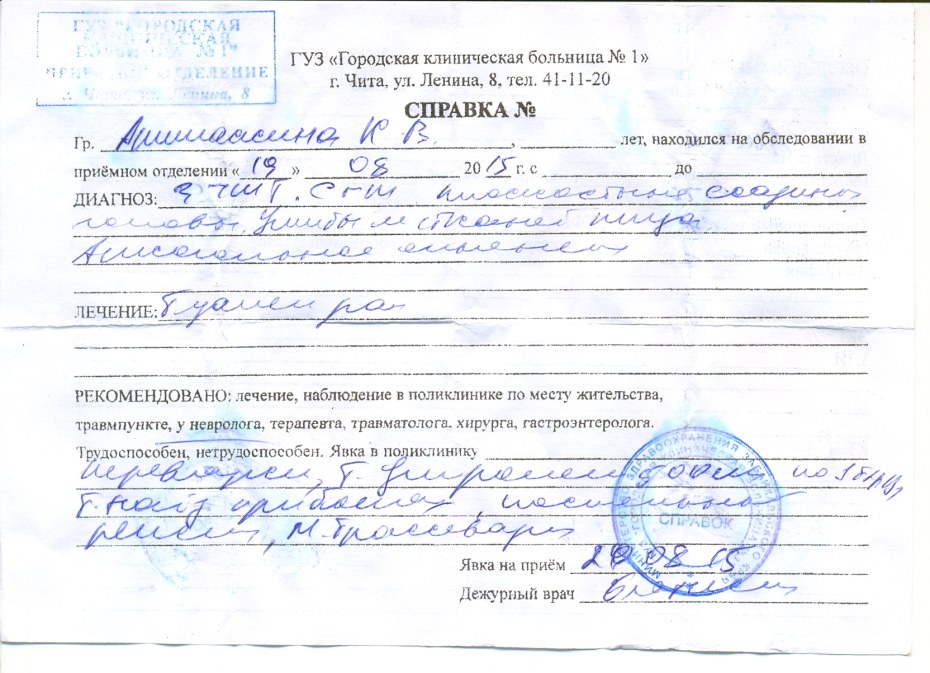 ГУЗ "ГОРОДСКАЯ
КЛИНИЧЕСКАЯ
БОЛЬНИЦА №1"
ПРИЕМНОЕ ОТДЕЛЕНИЕ
г. Чита, ул. Ленина, 8
ГУЗ «Городская клиническая больница № 1»
г. Чита, ул. Ленина, 8, тел. 41-11-20
СПРАВКА №
Гр. К В. , лет, находился на обследовании в
приёмном отделении «19» 08 2015 г. с до
ДИАГНОЗ: ЗЧМТ. СГМ
головы. Ушибы м тканей лица
Алкогольное опьянение
ЛЕЧЕНИЕ: Туалет ран
РЕКОМЕНДОВАНО: лечение, наблюдение в поликлинике по месту жительства,
травмпункте, у невролога, терапевта, травматолога, хирурга, гастроэнтеролога.
Трудоспособен, нетрудоспособен. Явка в поликлинику
перевязки, т. по
т. постельный
режим,
СПРАВОК
Явка на приём 20 08 15
Дежурный врач